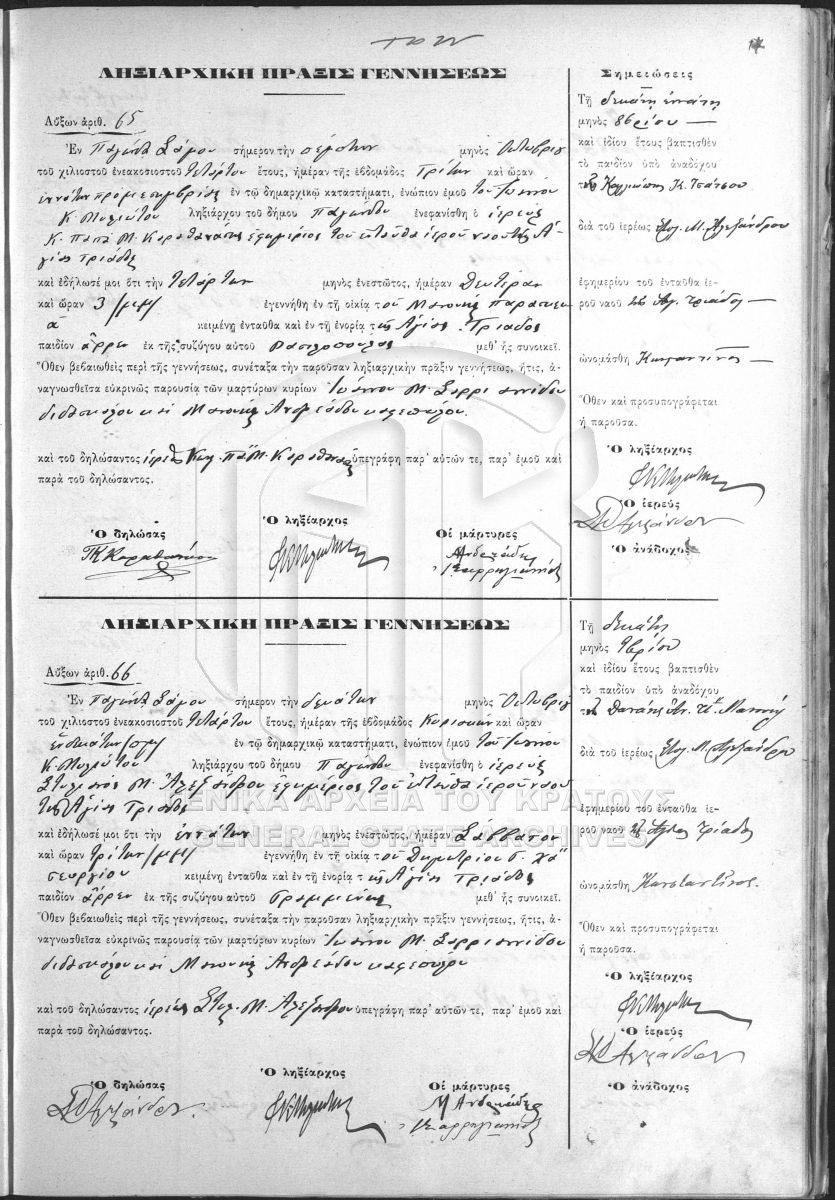 ΛΗΞΙΑΡΧΙΚΗ ΠΡΑΞΙΣ ΓΕΝΝΗΣΕΩΣ
Αὔξων ἀριθ. 65
Ἐν Παγώνδᾳ Σάμου σήμερον τὴν πέμπτην μηνὸς Ὀκτωβρίου
τοῦ χιλιοστοῦ ἐνεακοσιοστοῦ τετάρτου ἔτους, ἡμέραν τῆς ἑβδομάδος Τρίτην καὶ ὥραν
ἐννάτην προμεσημβρίας ἐν τῷ δημαρχικῷ καταστήματι, ἐνώπιον ἐμοῦ τοῦ Ἰωάννου
Κ. ληξιάρχου τοῦ δήμου Παγώνδου ἐνεφανίσθη ὁ ἱερεὺς
Κ. Παπᾶ Μ. Καραθανάσης ἐφημέριος τοῦ ἐνταῦθα ἱεροῦ ναοῦ τῆς Ἁ-
γίας Τριάδος
καὶ ἐδήλωσέ μοι ὅτι τὴν τετάρτην μηνὸς ἐνεστῶτος, ἡμέραν Δευτέραν
καὶ ὥραν 3 /μμ/ ἐγεννήθη ἐν τῇ οἰκίᾳ τοῦ Μανουὴλ
κειμένῃ ἐνταῦθα καὶ ἐν τῇ ἐνορίᾳ τῆς Ἁγίας Τριάδος
παιδίον ἄρρεν ἐκ τῆς συζύγου αὐτοῦ μεθ' ἧς συνοικεῖ.
Ὅθεν βεβαιωθεὶς περὶ τῆς γεννήσεως, συνέταξα τὴν παροῦσαν ληξιαρχικὴν πρᾶξιν γεννήσεως, ἥτις, ἀ-
ναγνωσθεῖσα εὐκρινῶς παρουσίᾳ τῶν μαρτύρων κυρίων Ἰωάννου Μ. Σαρρηγιαννίδου
διδασκάλου καὶ Μανουὴλ Ἀνδρεάδου καφεπώλου.
καὶ τοῦ δηλώσαντος ἱερέως Κωνσ. Παπᾶ Μ. Καραθανάση ὑπεγράφη παρ' αὐτῶν τε, παρ' ἐμοῦ καὶ
παρὰ τοῦ δηλώσαντος.
Ὁ δηλώσας Ὁ ληξίαρχος Οἱ μάρτυρες
Ἀνδρεάδης
Σημειώσεις
Τῇ δεκάτῃ ἐννάτῃ
μηνὸς 8βρίου
καὶ ἰδίου ἔτους βαπτισθὲν
τὸ παιδίον ὑπὸ ἀναδόχου
Κ. Τσάτσου
διὰ τοῦ ἱερέως Στυλ. Μ. Ἀλεξάνδρου
ἐφημερίου τοῦ ἐνταῦθα ἱε-
ροῦ ναοῦ τῆς Ἁγ. Τριάδος
ὠνομάσθη Κωνσταντῖνος
Ὅθεν καὶ προσυπογράφεται
ἡ παροῦσα.
Ὁ ληξίαρχος
Ὁ ἱερεὺς
Ὁ ἀνάδοχος
ΛΗΞΙΑΡΧΙΚΗ ΠΡΑΞΙΣ ΓΕΝΝΗΣΕΩΣ
Αὔξων ἀριθ. 66
Ἐν Παγώνδᾳ Σάμου σήμερον τὴν δεκάτην μηνὸς Ὀκτωβρίου
τοῦ χιλιοστοῦ ἐνεακοσιοστοῦ τετάρτου ἔτους, ἡμέραν τῆς ἑβδομάδος Κυριακὴν καὶ ὥραν
ἑνδεκάτην /πμ/ ἐν τῷ δημαρχικῷ καταστήματι, ἐνώπιον ἐμοῦ τοῦ Ἰωάννου
Κ. ληξιάρχου τοῦ δήμου Παγώνδου ἐνεφανίσθη ὁ ἱερεὺς
Στυλιανὸς Μ. Ἀλεξάνδρου ἐφημέριος τοῦ ἐνταῦθα ἱεροῦ ναοῦ
τῆς Ἁγίας Τριάδος
καὶ ἐδήλωσέ μοι ὅτι τὴν ἐννάτην μηνὸς ἐνεστῶτος, ἡμέραν Σάββατον
καὶ ὥραν τρίτην /μμ/ ἐγεννήθη ἐν τῇ οἰκίᾳ τοῦ Δημητρίου
κειμένῃ ἐνταῦθα καὶ ἐν τῇ ἐνορίᾳ τῆς Ἁγίας Τριάδος
παιδίον ἄρρεν ἐκ τῆς συζύγου αὐτοῦ μεθ' ἧς συνοικεῖ.
Ὅθεν βεβαιωθεὶς περὶ τῆς γεννήσεως, συνέταξα τὴν παροῦσαν ληξιαρχικὴν πρᾶξιν γεννήσεως, ἥτις, ἀ-
ναγνωσθεῖσα εὐκρινῶς παρουσίᾳ τῶν μαρτύρων κυρίων Ἰωάννου Μ. Σαρρηγιαννίδου
διδασκάλου καὶ Μανουὴλ Ἀνδρεάδου καφεπώλου
καὶ τοῦ δηλώσαντος ἱερέως Στυλ. Μ. Ἀλεξάνδρου ὑπεγράφη παρ' αὐτῶν τε, παρ' ἐμοῦ καὶ
παρὰ τοῦ δηλώσαντος.
Ὁ δηλώσας Ὁ ληξίαρχος Οἱ μάρτυρες
Μ Ἀνδρεάδης
Τῇ δεκάτῃ
μηνὸς
καὶ ἰδίου ἔτους βαπτισθὲν
τὸ παιδίον ὑπὸ ἀναδόχου
διὰ τοῦ ἱερέως Στυλ. Μ. Ἀλεξάνδρου
ἐφημερίου τοῦ ἐνταῦθα ἱε-
ροῦ ναοῦ τῆς Ἁγίας Τριάδος
ὠνομάσθη Κωνσταντῖνος.
Ὅθεν καὶ προσυπογράφεται
ἡ παροῦσα.
Ὁ ληξίαρχος
Ὁ ἱερεὺς
Ὁ ἀνάδοχος
ΓΕΝΙΚΑ ΑΡΧΕΙΑ ΤΟΥ ΚΡΑΤΟΥΣ
GENERAL STATE ARCHIVES